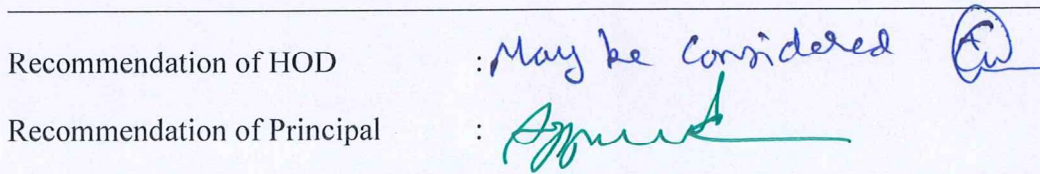 Recommendation of HOD : May be considered
Recommendation of Principal : Approved